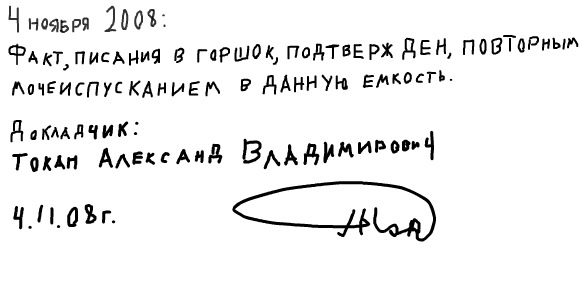 4 ноября 2008:
Факт, писания в горшок, подтвержден, повторным
мочеиспусканием в данную емкость.
Докладчик:
Токан Александ Владимирович
4.11.08г.